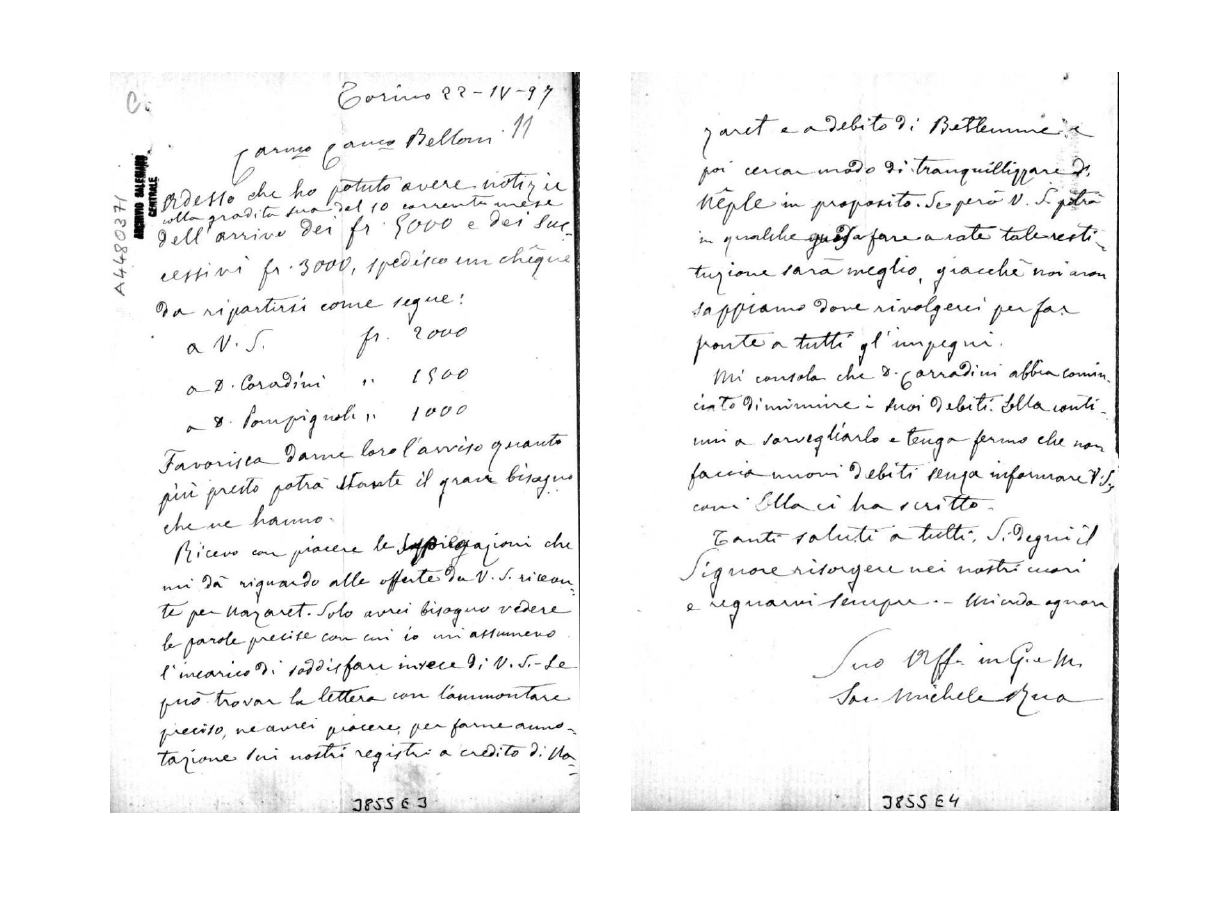 C.
Torino 22-IV-97
11
Car.mo Can.co Belloni
A4480371
ARCHIVIO SALESIANO
CENTRALE
Adesso che ho potuto avere notizie
colla gradita sua del 10 corrente mese
dell'arrivo dei fr. 5000 e dei suc-
cessivi fr. 3000, spedisco un chêque
da ripartirsi come segue:
a V. S. fr. 2000
a D. Coradini " 1500
a D. Pompignoli " 1000
Favorisca darne loro l'avviso quanto
più presto potrà stante il grave bisogno
che ne hanno.
Ricevo con piacere le spiegazioni che
mi dà riguardo alle offerte da V. S. ricevu-
te per Nazaret. Solo avrei bisogno vedere
le parole precise con cui io mi assumevo
l'incarico di soddisfare invece di V. S. Se
può trovar la lettera con l'ammontare
preciso, ne avrei piacere, per farne anno-
tazione sui nostri registri a credito di Na=
3855 E 3
zaret e a debito di Betlemme e
poi cercar modo di tranquillizzare D.
Nêple in proposito. Se però V. S. potrà
in qualche guisa fare a rate tale resti-
tuzione sarà meglio, giacchè noi non
sappiamo dove rivolgerci per far
fronte a tutti gl'impegni.
Mi consola che D. Corradini abbia comin-
ciato diminuire i suoi debiti. Ella conti-
nui a sorvegliarlo e tenga fermo che non
faccia nuovi debiti senza informare V. S.,
come Ella ci ha scritto.
Tanti saluti a tutti. Si degni il
Signore risorgere nei nostri cuori
e regnarvi sempre. - Mi creda ognora
Suo Aff. in G. e M.
Sac. Michele Rua
3855 E4